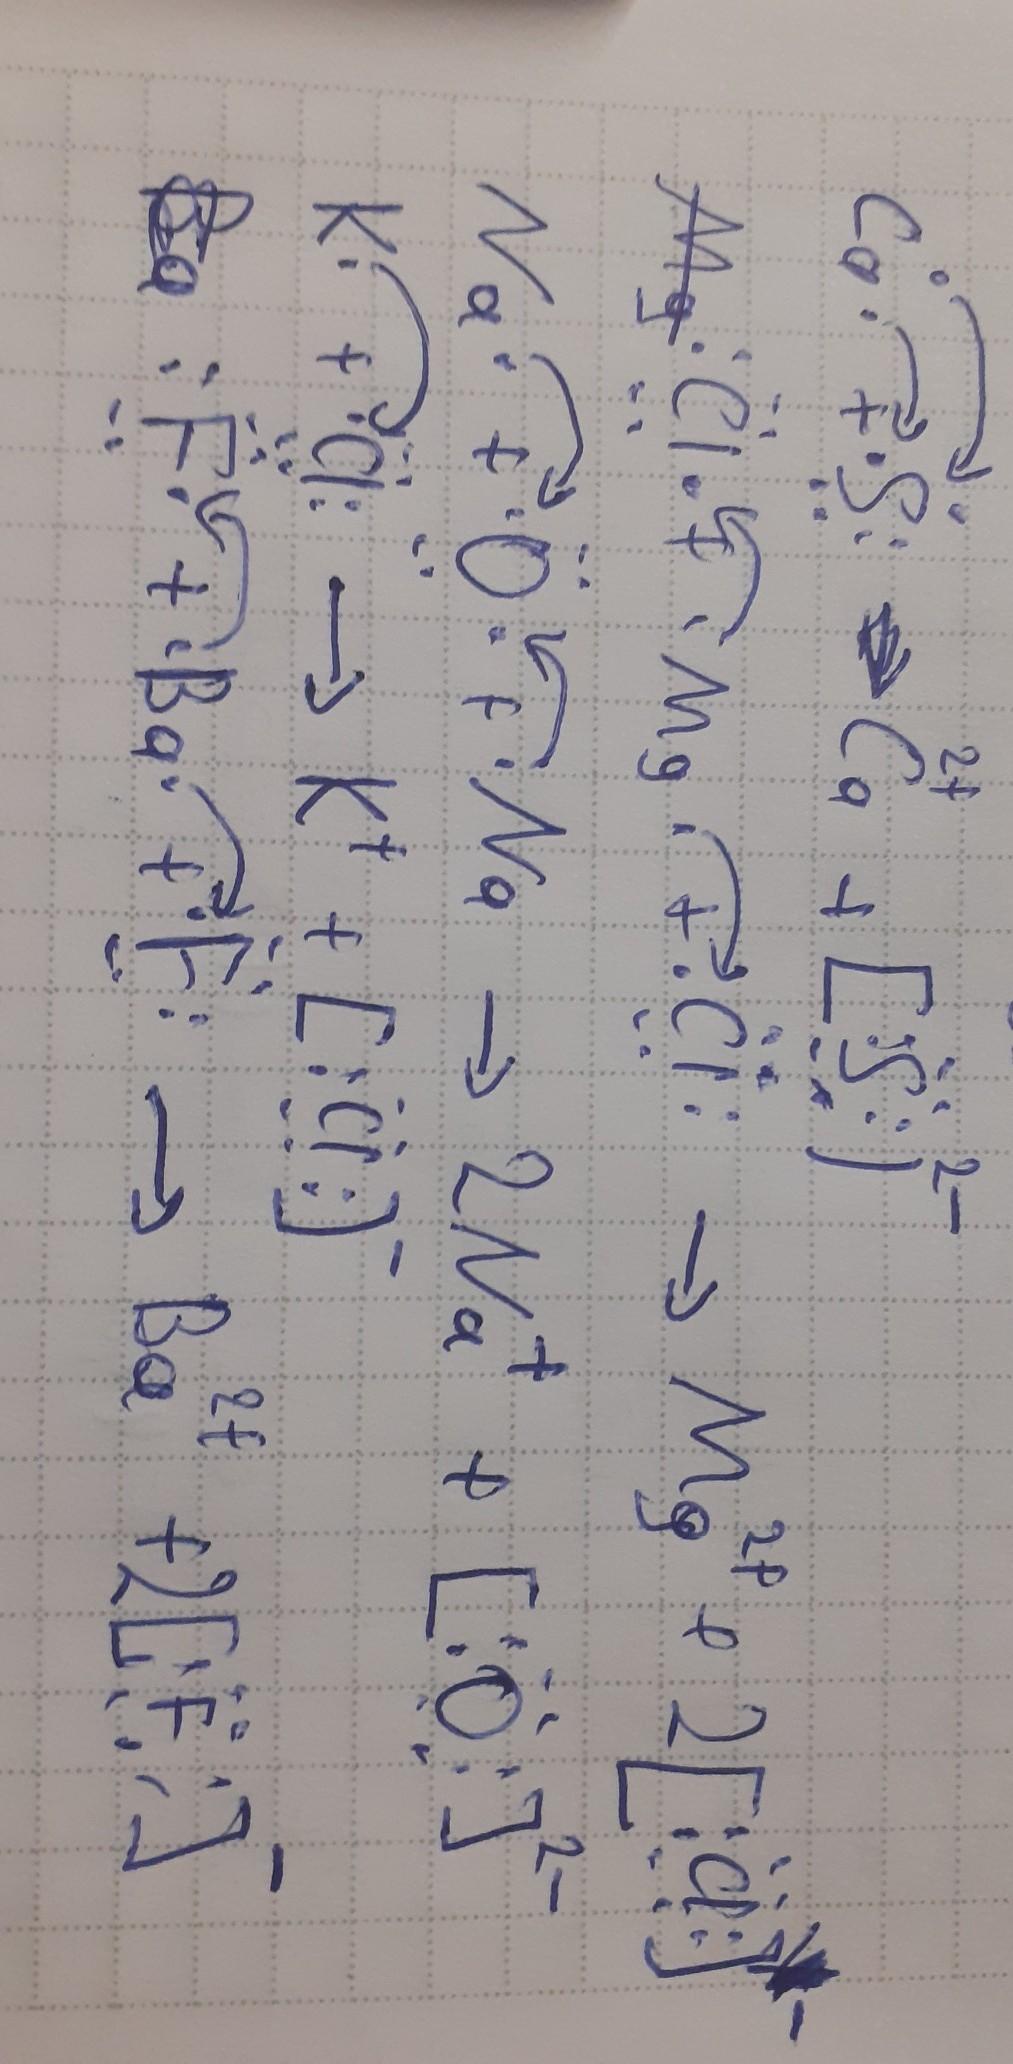 Ca: + ·S̈: → Ca²⁺ + [:S̈:]²⁻
:C̈l· + ·Mg· + ·C̈l: → Mg²⁺ + 2[:C̈l:]⁻
Na· + ·Ö· + ·Na → 2Na⁺ + [:Ö:]²⁻
K· + ·C̈l: → K⁺ + [:C̈l:]⁻
:F̈· + ·Ba· + ·F̈: → Ba²⁺ + 2[:F̈:]⁻